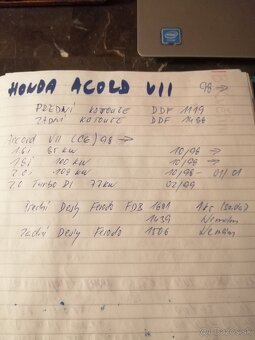 HONDA ACORD VII 98 →
PŘEDNÍ KOTOUČE DDF 1119
ZADNÍ KOTOUČE DDF
Accord VII (CG) 98 →
1.6i 85 KW 10/98 →
1.8i 100 KW 10/98 →
2.0i 108 KW 10/98 - 01/01
2.0 Turbo DI 77 KW 02/99
Přední Desky Ferodo FDB 1681 1ks (Sada)
1439 Nemám
Zadní Desky Ferodo 1506 Nemám
intel